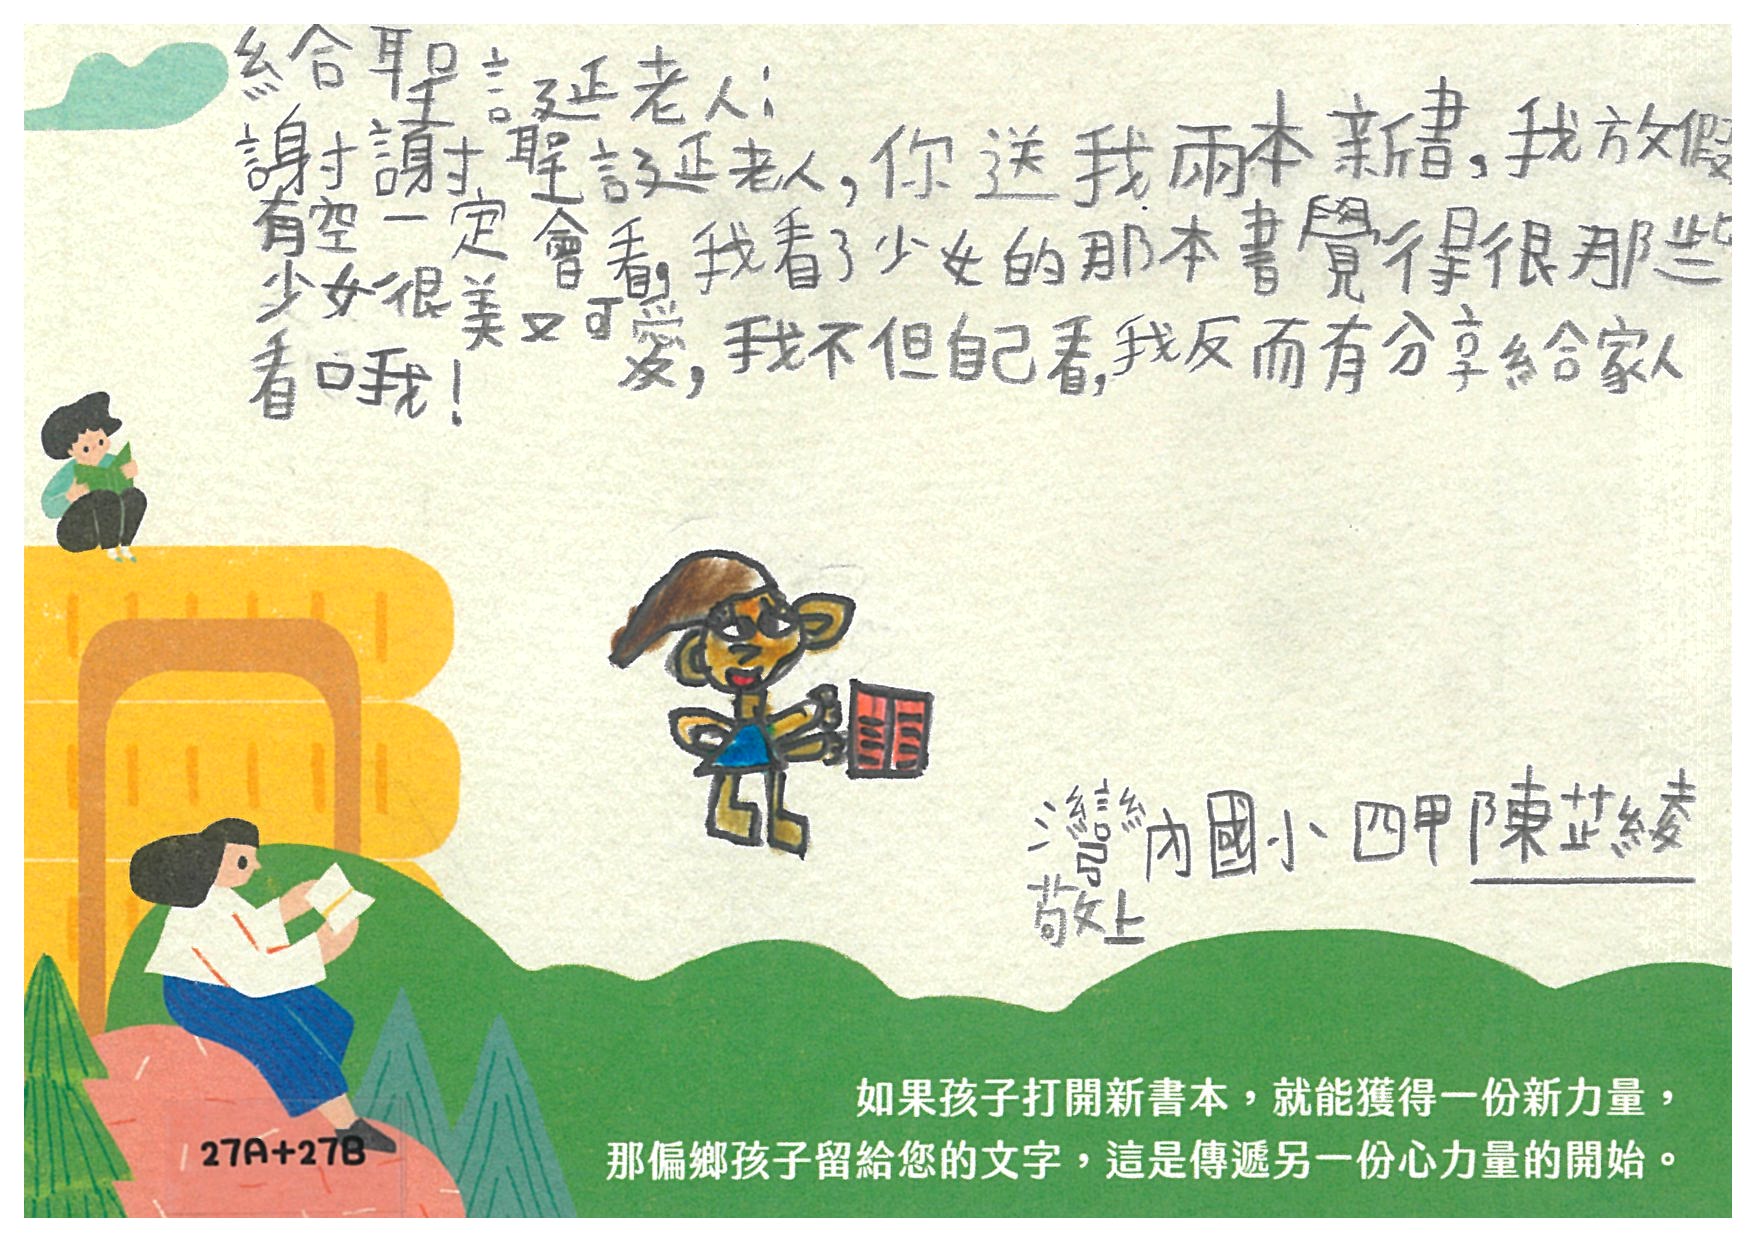 給聖誕老人:
謝謝聖誕老人,你送我兩本新書,我放假
有空一定會看,我看了少女的那本書覺得很那些
少女很美又可愛,我不但自己看,我反而有分享給家人
看哦!
灣內國小四甲陳芷綾
敬上
27A+27B
如果孩子打開新書本,就能獲得一份新力量,
那偏鄉孩子留給您的文字,這是傳遞另一份心力量的開始。